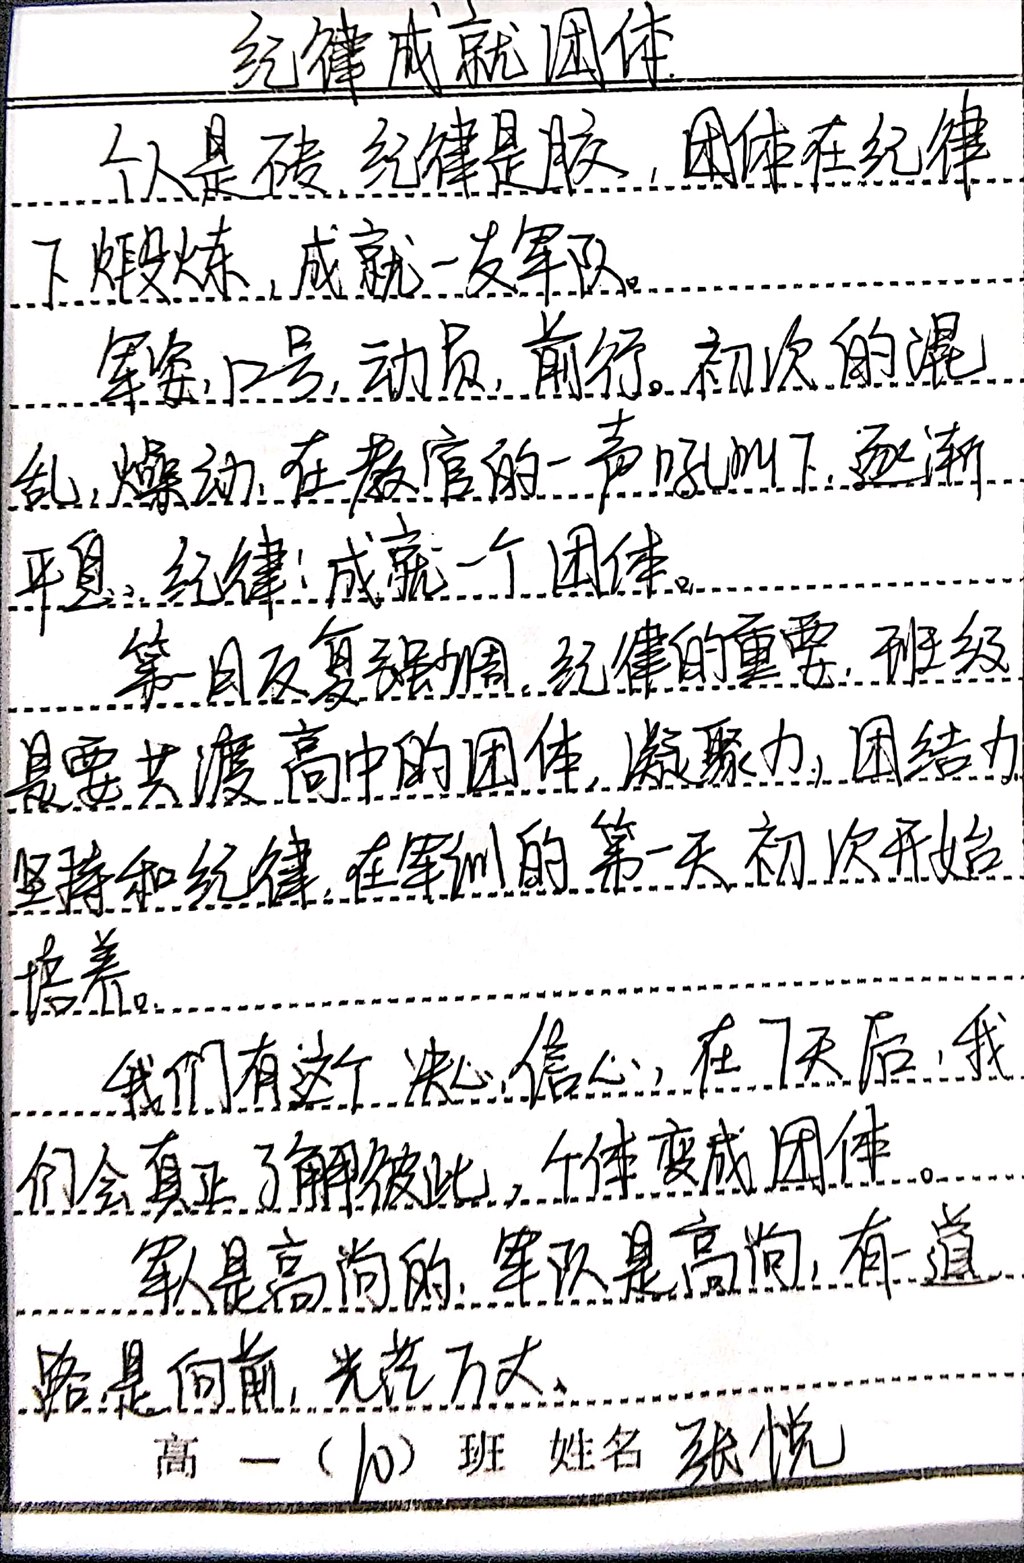 纪律成就团体
个人是砖，纪律是胶，团体在纪律
下煅炼，成就一支军队。
军姿，口号，动员，前行。初次的混
乱，燥动，在教官的一声吼叫下，逐渐
平息，纪律：成就一个团体。
第一日反复强调，纪律的重要，班级
是要共渡高中的团体，凝聚力，团结力
坚持和纪律，在军训的第一天初次开始
培养。
我们有这个决心，信心，在7天后，我
们会真正了解彼此，个体变成团体。
军人是高尚的，军队是高尚，有一道
路是向前，光芒万丈、
高一（10）班 姓名 张悦